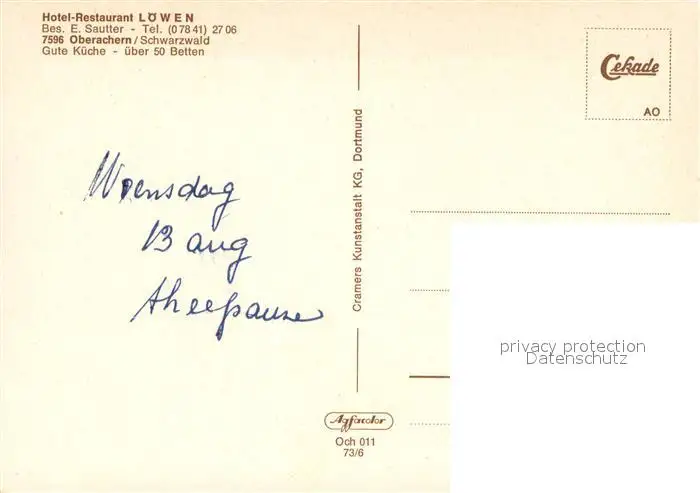 Hotel-Restaurant LÖWEN
Bes. E. Sautter - Tel. (0 78 41) 27 06
7596 Oberachern/Schwarzwald
Gute Küche - über 50 Betten
Cekade
AO
Woensdag
13 aug
theepauze
Cramers Kunstanstalt KG, Dortmund
privacy protection
Datenschutz
Agfacolor
Och 011
73/6